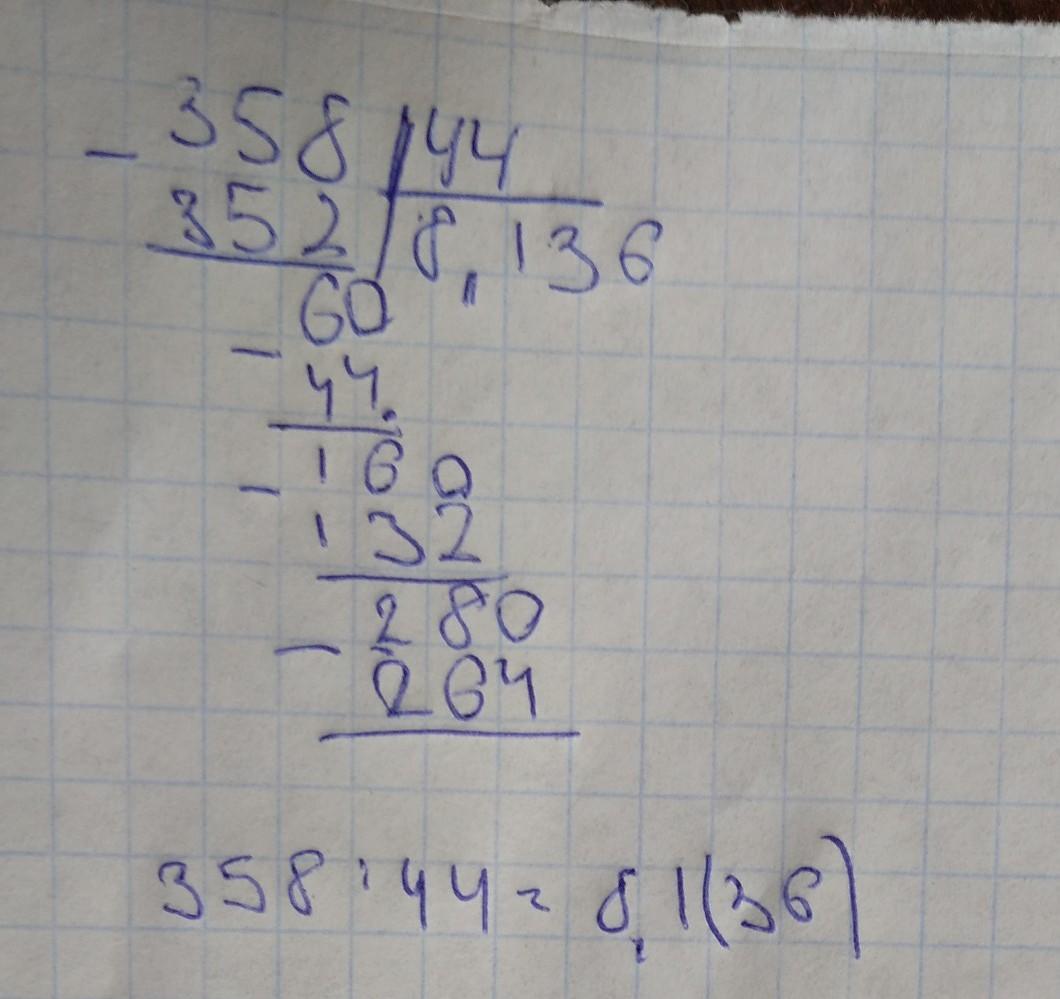 - 358 44
352 8,136
60
- 44.
- 160
132
280
- 264
358 : 44 = 8,1(36)